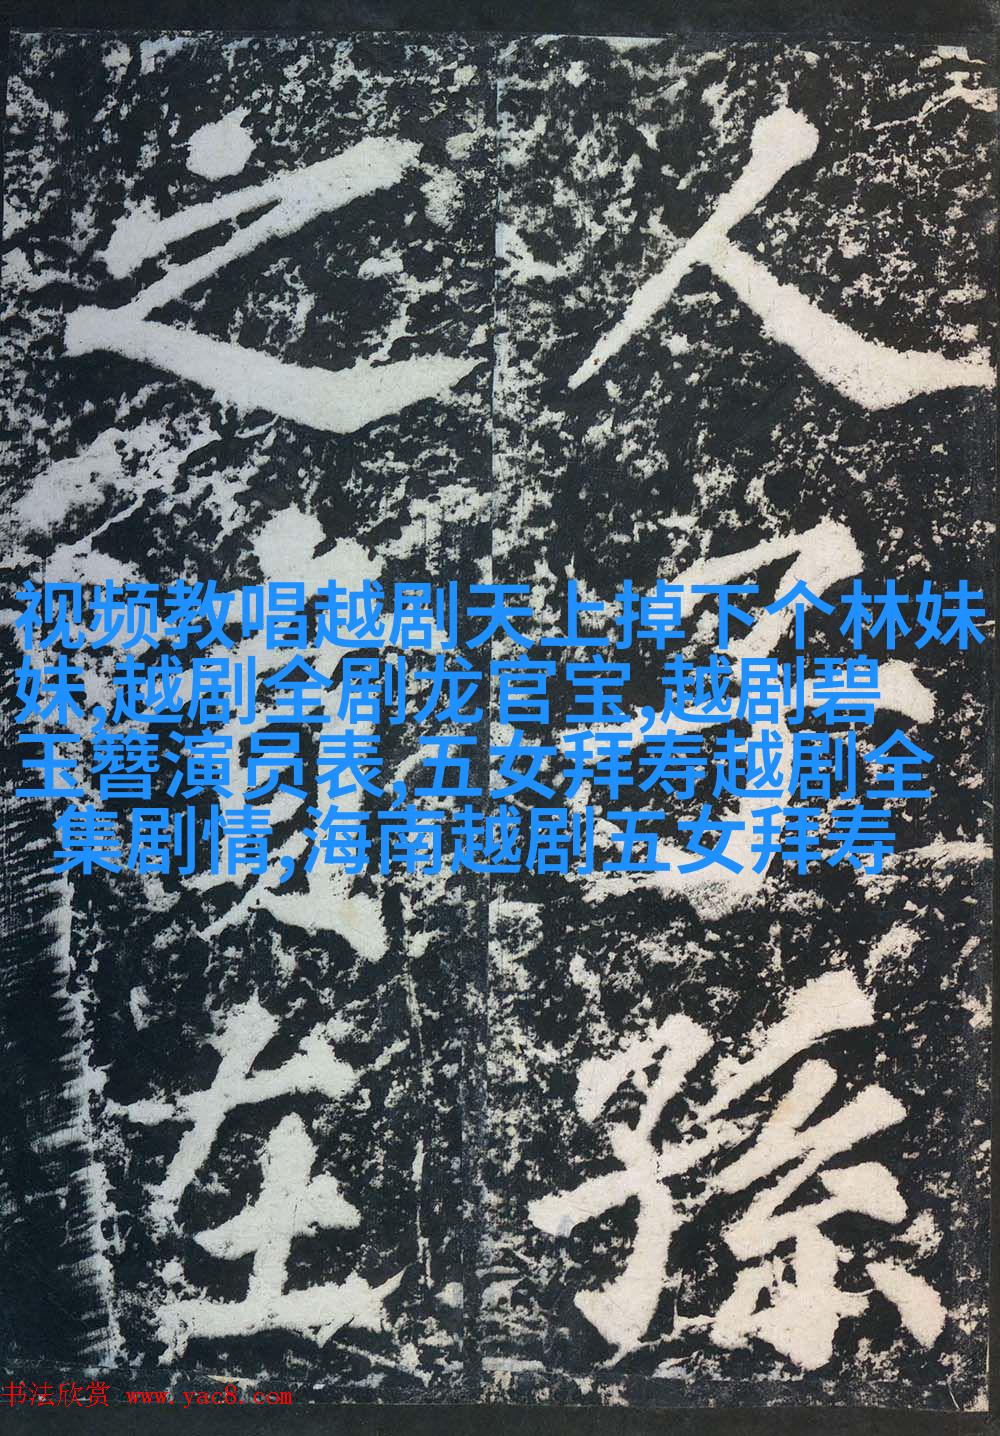 人 孫
之 在
视频教唱越剧天上掉下个林妹
妹,越剧全剧龙官宝,越剧碧
玉簪演员表,五女拜寿越剧全
集剧情,海南越剧五女拜寿
书法欣赏 www.yac8.com